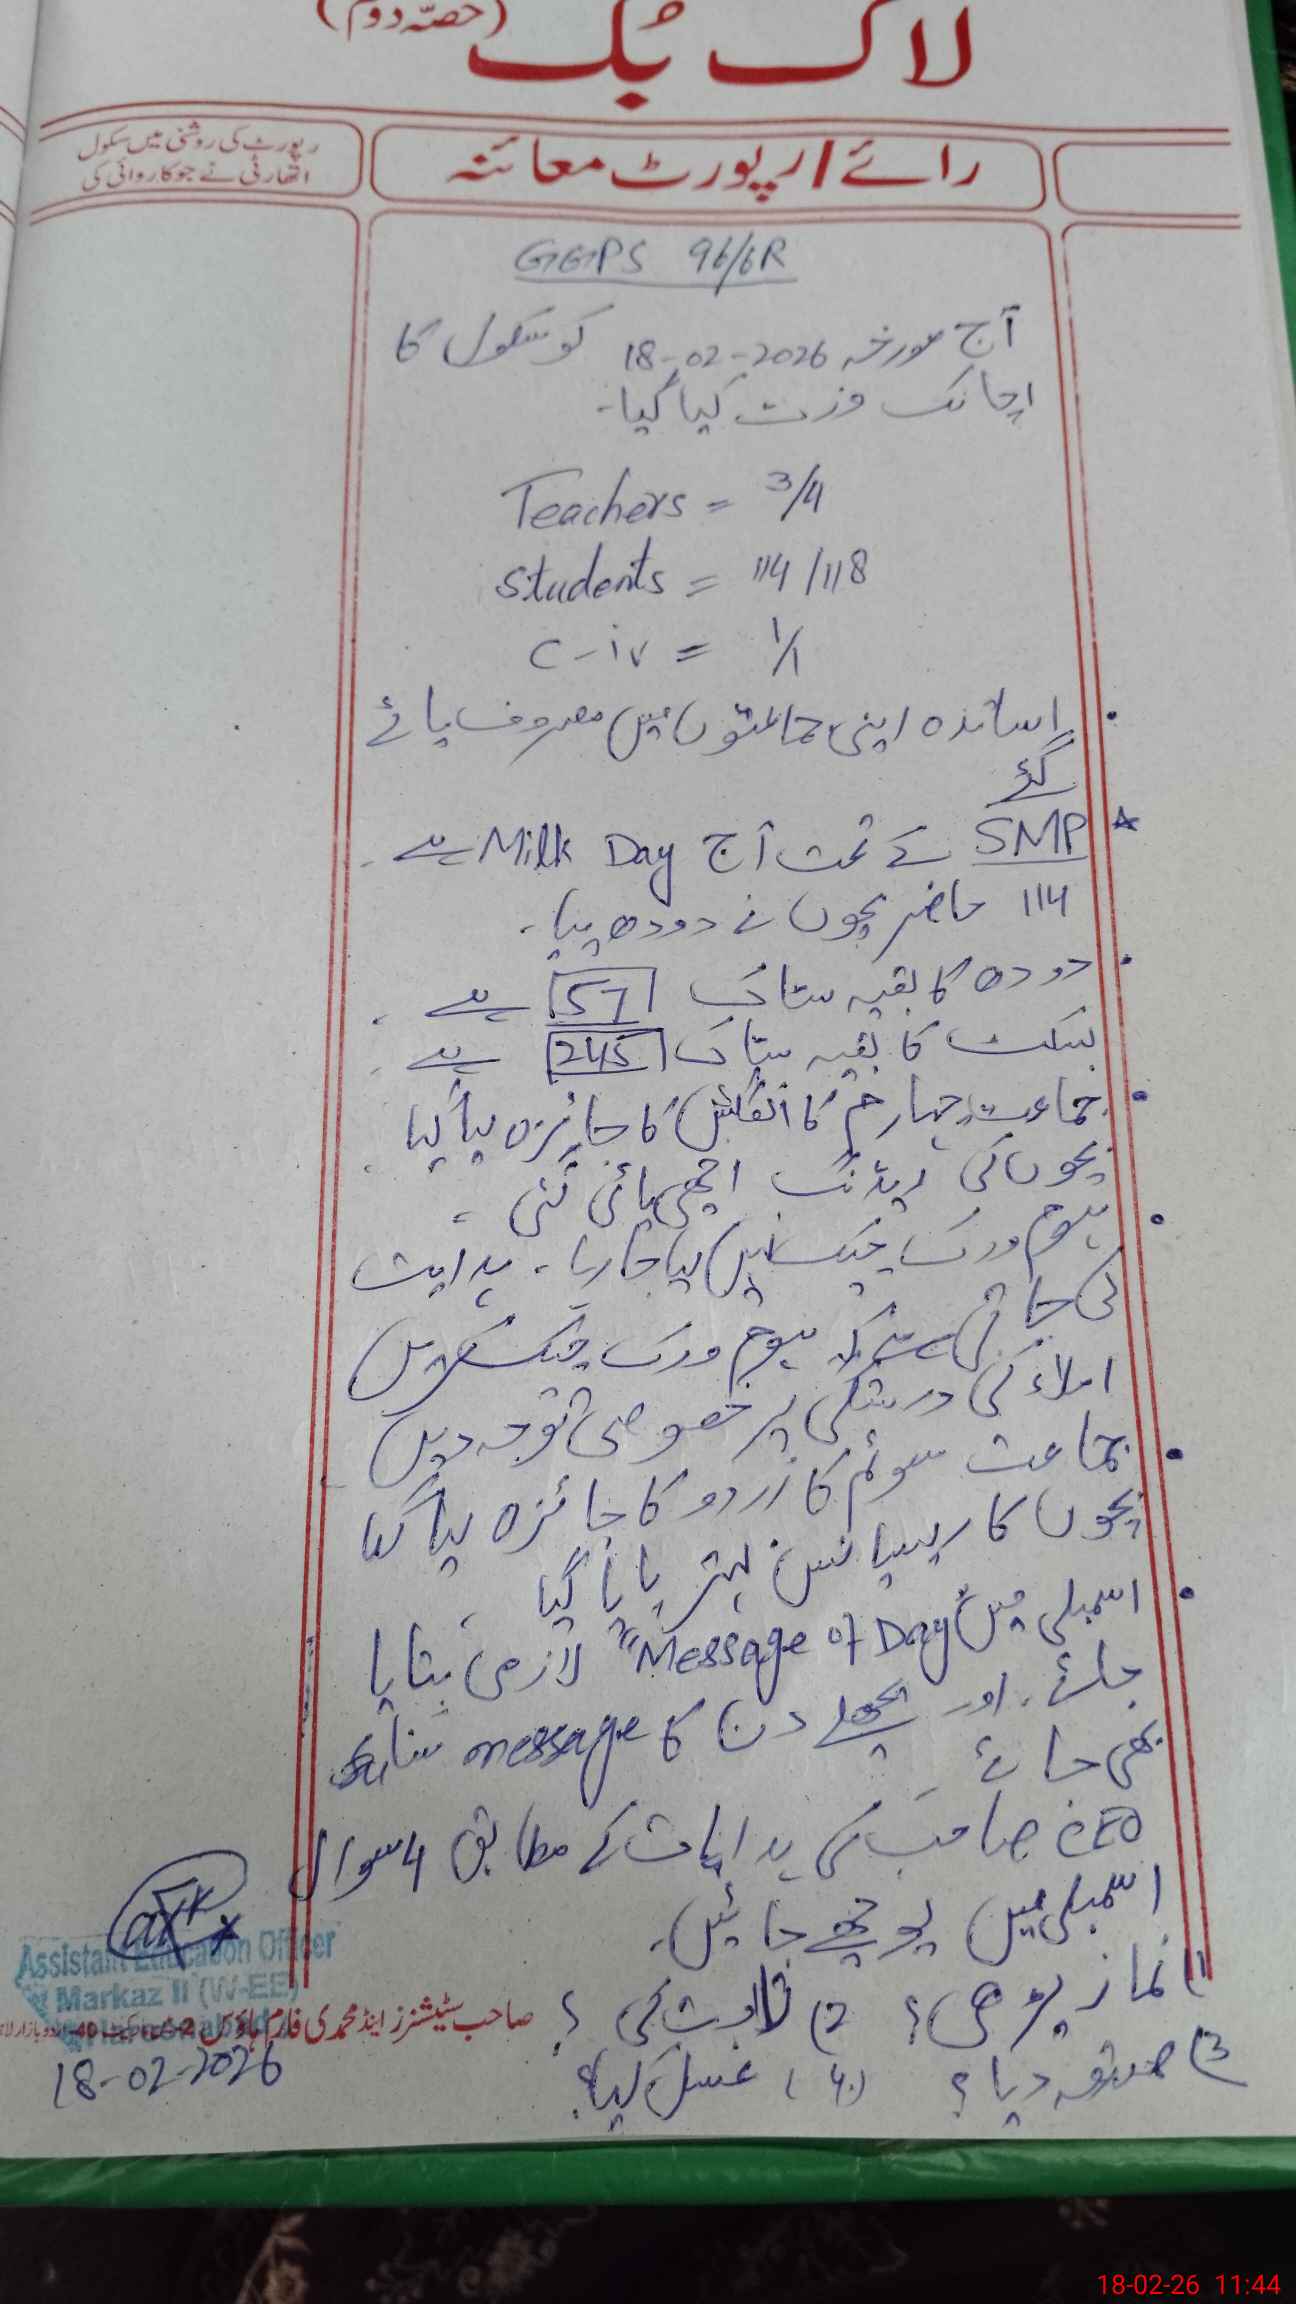 لاگ بُک (حصّہ دوم)
رائے/رپورٹ معائنہ
رپورٹ کی روشنی میں سکول
اتھارٹی نے جو کاروائی کی
GGPS 96/6R
آج مورخہ 18-02-2026 کو سکول کا
اچانک وزٹ کیا گیا۔
Teachers = 3/4
Students = 114/118
C-iv = 1/1
اساتذہ اپنی جماعتوں میں مصروف پائے
گئے
SMP کے تحت آج Milk Day ہے۔
114 حاضر بچوں نے دودھ پیا۔
دودھ کا بقیہ سٹاک 57 ہے۔
بسکٹ کا بقیہ سٹاک 245 ہے۔
جماعت چہارم کا انگلش کا جائزہ لیا گیا
بچوں کی ریڈنگ اچھی پائی گئی۔
ہوم ورک چیک نہیں کیا جا رہا۔ ہدایت
کی جاتی ہے کہ ہوم ورک چیک کریں
املاء کی درستگی پر خصوصی توجہ دیں
جماعت سوئم کا اردو کا جائزہ لیا گیا
بچوں کا رسپانس بہتر پایا گیا۔
اسمبلی میں "Message of Day" لازمی بتایا
جائے۔ اور پچھلے دن کا message سنا
بھی جائے
CEO صاحب کی ہدایات کے مطابق 4 سوال
اسمبلی میں پوچھے جائیں۔
1) نماز پڑھی؟ 2) تلاوت کی؟
3) صدقہ دیا؟ 4) غسل کیا؟
Assistant Education Officer
Markaz II (W-EE)
18-02-2026
صاحب سٹیشنرز اینڈ محمدی فارم ہاؤس
18-02-26 11:44